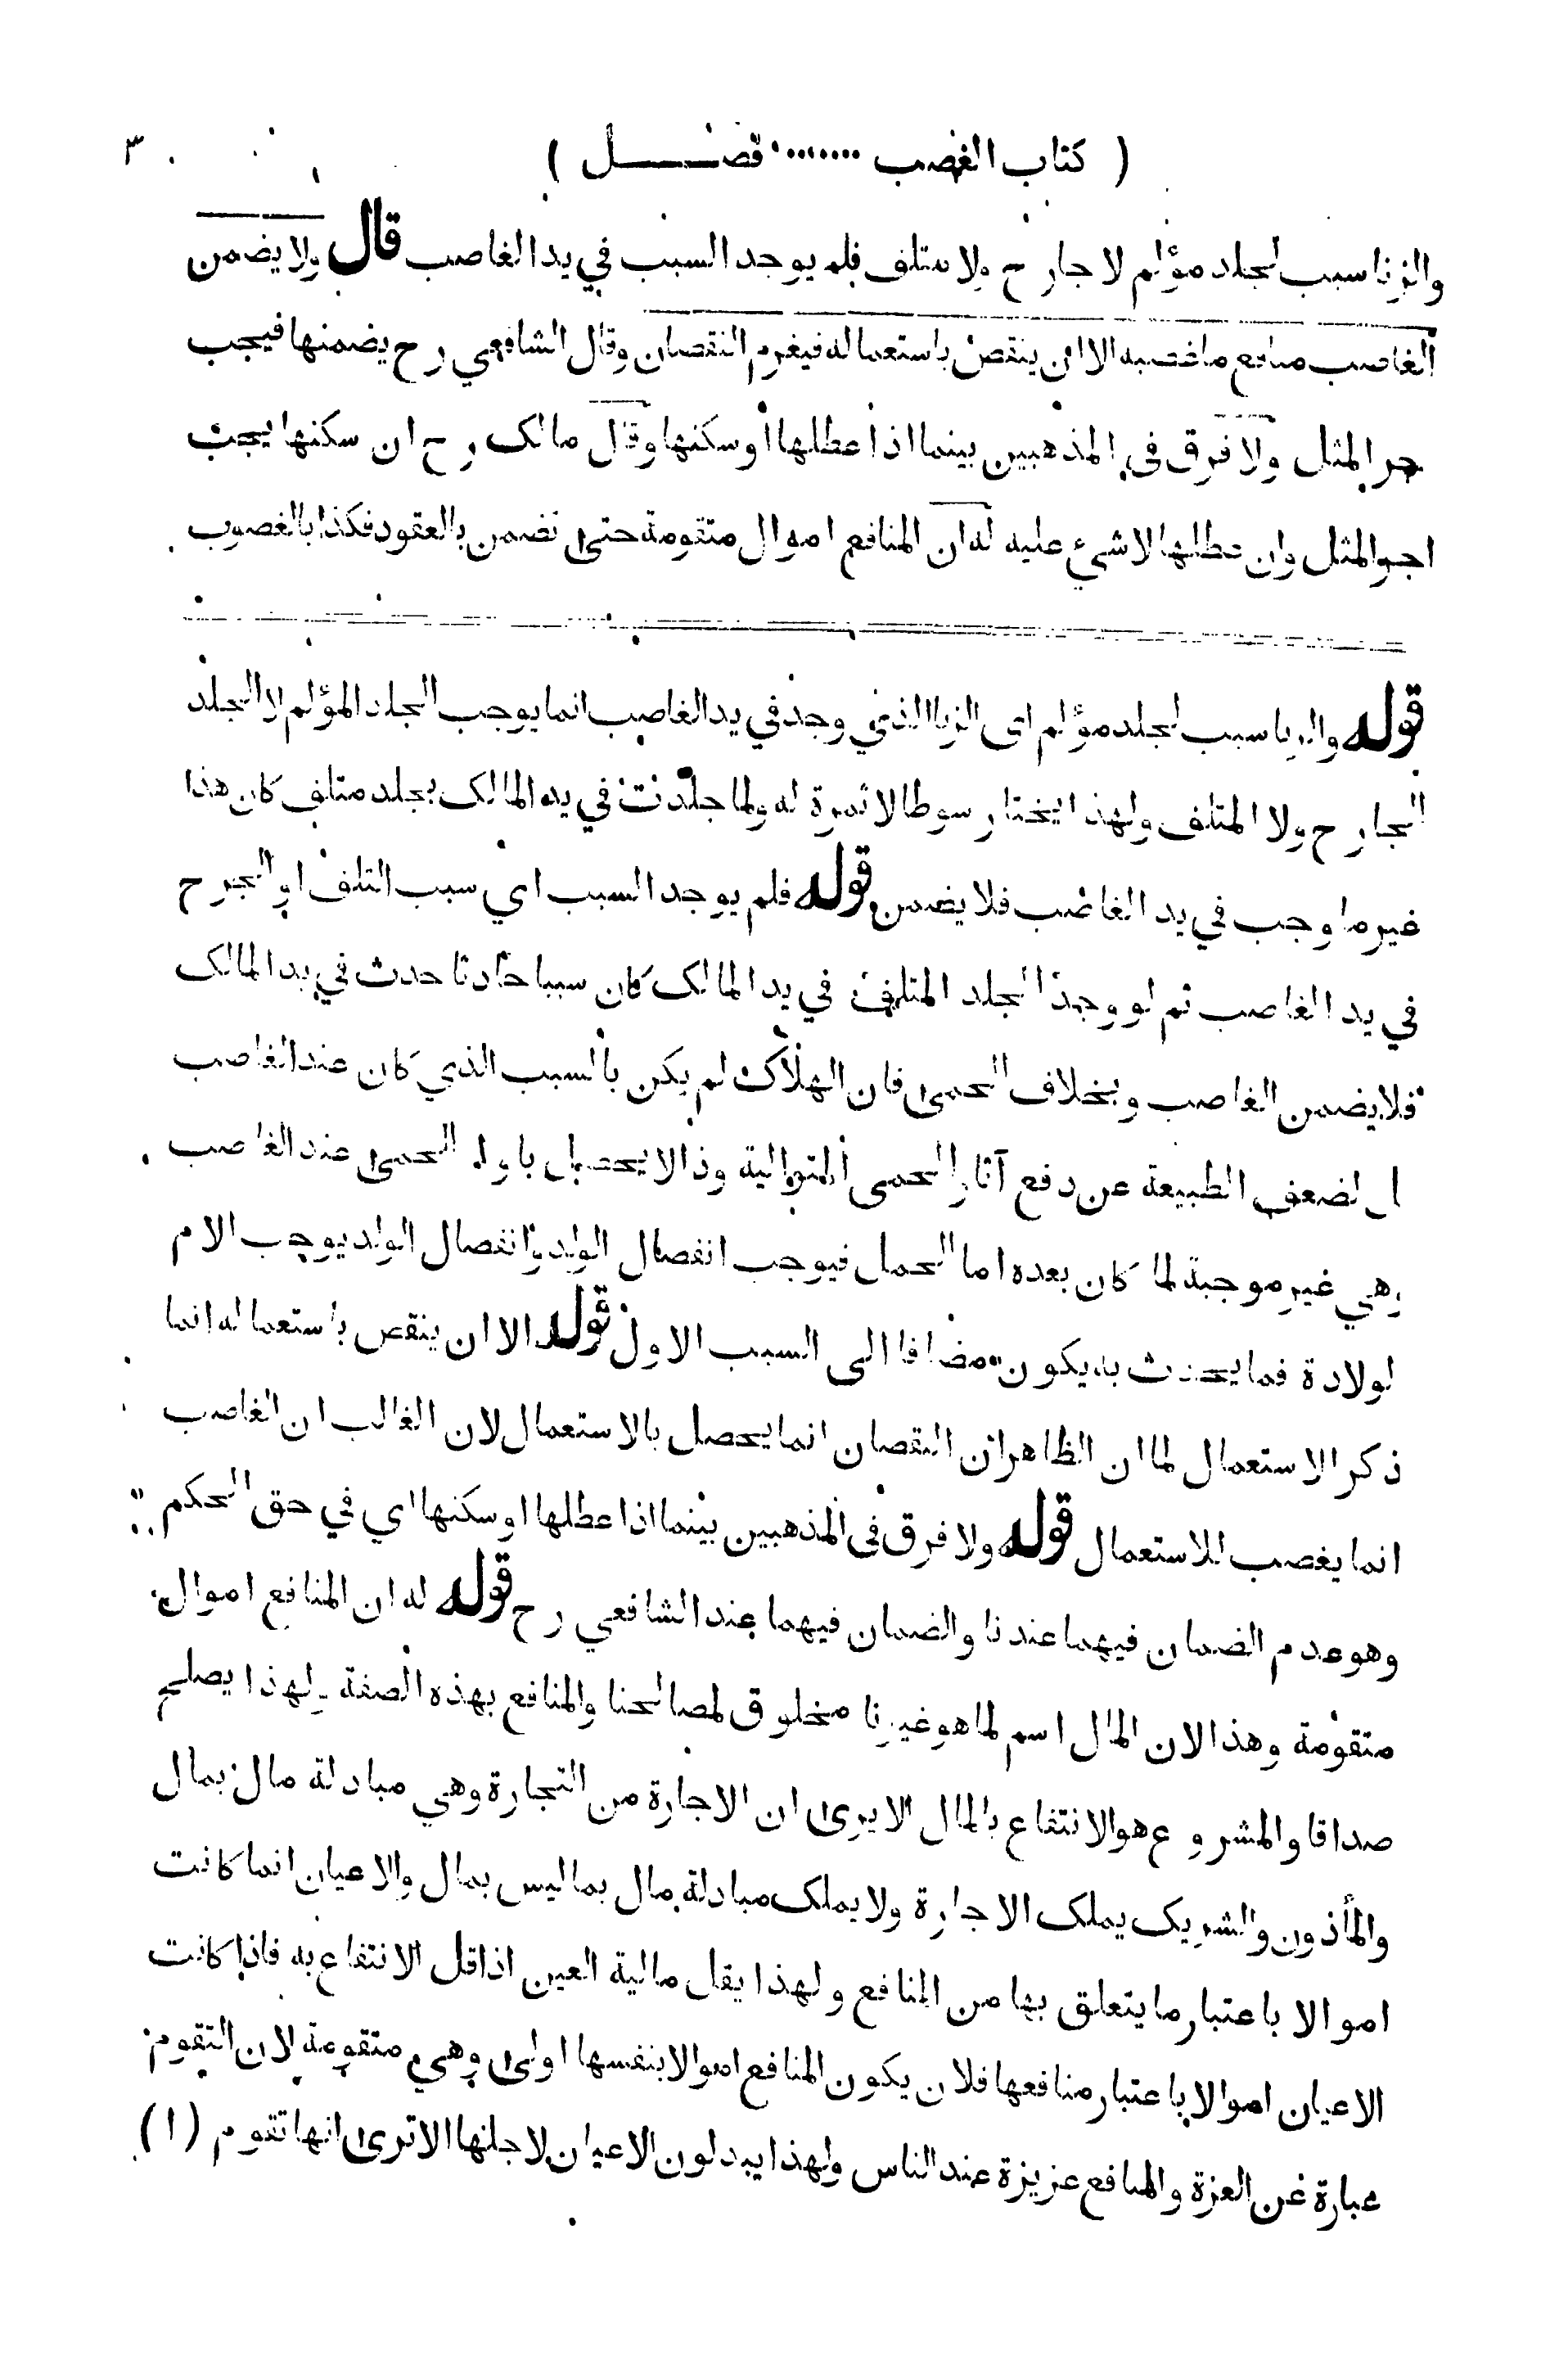 ( كتاب الغصب ....... فصــــل ) ٣
والزنا سبب لجلد مؤلم لا جارح ولا متلف فلم يوجد السبب في يد الغاصب قال ولا يضمن
الغاصب منافع ما غصبه الا ان ينقص باستعماله فيغرم النقصان وقال الشافعي رح يضمنها فيجب
جر المثل ولا فرق في المذهبين بينما اذا عطلها أو سكنها وقال مالك رح ان سكنها يجب
اجر المثل وان عطلها لا شيء عليه له ان المنافع اموال متقومة حتى تضمن بالعقود فكذا بالغصوب
قوله والزنا سبب لجلد مؤلم اى الزنا الذي وجد في يد الغاصب انما يوجب الجلد المؤلم لا الجلد
الجارح ولا المتلف ولهذا يختار سوطا لا ثمرة له ولما جلدت في يد المالك بجلد متلف كان هذا
غير ما وجب في يد الغاصب فلا يضمن قوله فلم يوجد السبب اي سبب التلف او الجرح
في يد الغاصب ثم لو وجد الجلد المتلف في يد المالك كان سببا حادثا حدث في يد المالك
فلا يضمن الغاصب وبخلاف الحمى فان الهلاك لم يكن بالسبب الذي كان عند الغاصب
ل لضعف الطبيعة عن دفع آثار الحمى المتوالية وذا لا يحصل باول الحمى عند الغاصب
وهي غير موجبة لما كان بعده اما الحمل فيوجب انفصال الولد وانفصال الولد يوجب الام
لولادة فما يحدث به يكون مضافا الى السبب الاول قوله الا ان ينقص باستعماله انما
ذكر الاستعمال لما ان الظاهر ان النقصان انما يحصل بالاستعمال لان الغالب ان الغاصب
انما يغصب للاستعمال قوله ولا فرق فى المذهبين بينما اذا عطلها او سكنها اي في حق الحكم
وهو عدم الضمان فيهما عندنا والضمان فيهما عند الشافعي رح قوله له ان المنافع اموال
متقومة وهذا لان المال اسم لما هو غيرنا مخلوق لمصالحنا والمنافع بهذه الصفة ولهذا يصلح
صداقا والمشروع هو الانتفاع بالمال الا يرى ان الاجارة من التجارة وهي مبادلة مال بمال
والمأذون والشريك يملك الاجارة ولا يملك مبادلة مال بما ليس بمال والاعيان انما كانت
اموالا باعتبار ما يتعلق بها من المنافع ولهذا يقل مالية العين اذا قل الانتفاع به فاذا كانت
الاعيان اموالا باعتبار منافعها فلان يكون المنافع اموالا بنفسها اولى وهي متقومة لان التقوم
عبارة عن العزة والمنافع عزيزة عند الناس ولهذا يبدلون الاعيان لاجلها الا ترى انها تقوم (ا)